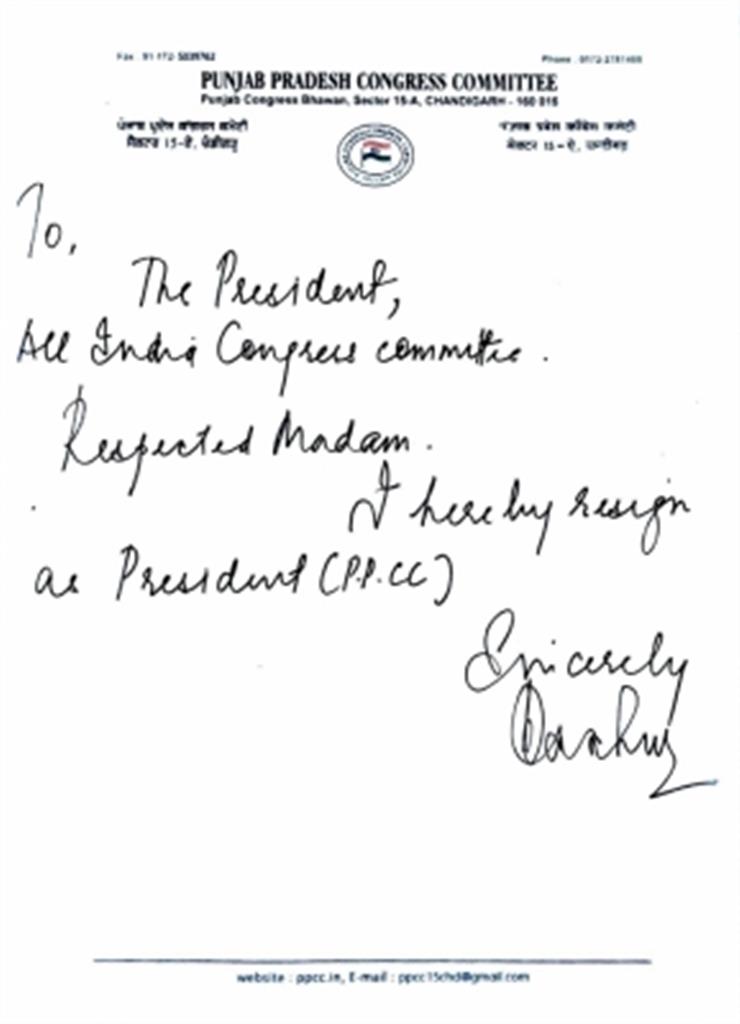 PUNJAB PRADESH CONGRESS COMMITTEE
Punjab Congress Bhawan, Sector 15-A, CHANDIGARH - 160 015
To,
The President,
All India Congress committee.
Respected Madam.
I hereby resign
as President (P.P.CC)
Sincerely
website : ppcc.in, E-mail : ppcc15chd@gmail.com